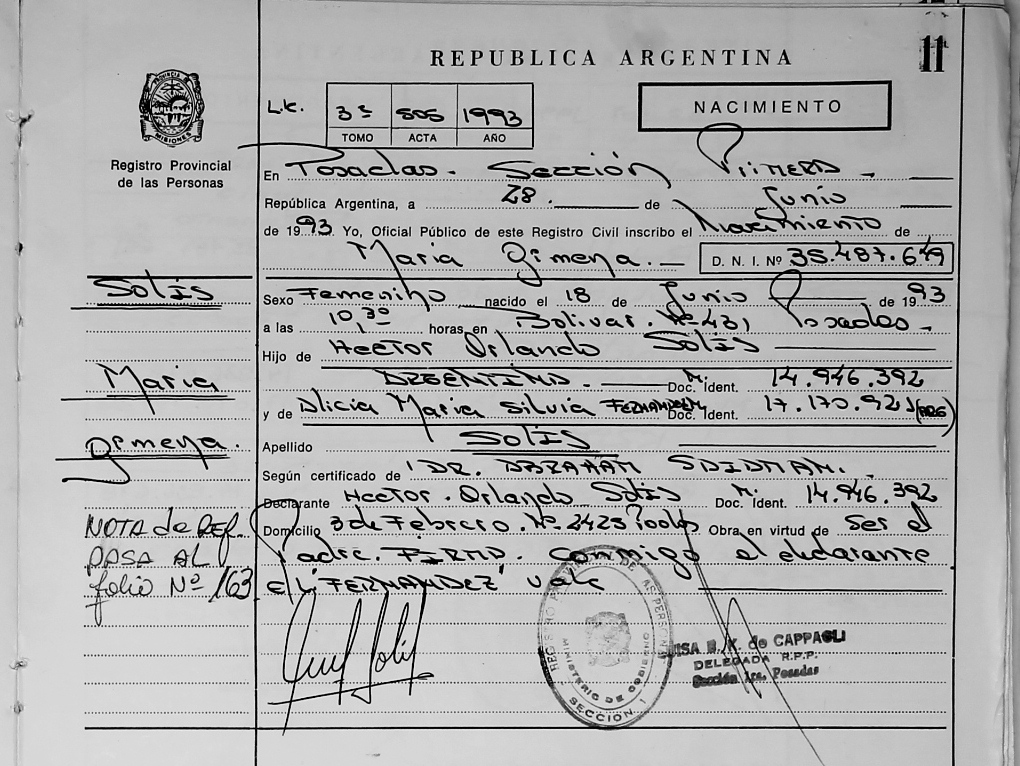 11
REPUBLICA ARGENTINA
PROVINCIA DE MISIONES
Lic. 3º 505 1993
TOMO ACTA AÑO
NACIMIENTO
Registro Provincial
de las Personas
En Posadas - Sección Primera
República Argentina, a 28 de Junio
de 1993 Yo, Oficial Público de este Registro Civil inscribo el Nacimiento de
Maria Gimena. D. N. I. Nº 35.487.649
Solís
Sexo Femenino nacido el 18 de Junio de 1993
a las 10 30 horas en Bolivar. Nº 431 Posadas.
Hijo de Hector Orlando Solís
Maria
Argentino. Doc. Ident. M. 14.946.392
y de Alicia Maria Silvia FERNANDEZ Doc. Ident. 17.170.921 (ARG)
Gimena.
Apellido Solís
Según certificado de DR. ABRAHAM
Declarante Hector. Orlando Solís Doc. Ident. M. 14.946.392
NOTA de REF.
PASA AL
folio Nº 163
Domicilio 3 de Febrero. Nº 2423 Obra en virtud de ser el
Padre. FIRMA. Conmigo el declarante
E/L "FERNANDEZ" vale
REGISTRO PROVINCIAL DE LAS PERSONAS
MINISTERIO DE GOBIERNO
SECCIÓN 1
de CAPPAGLI
DELEGADA R.P.P.
Sección 1ra. Posadas